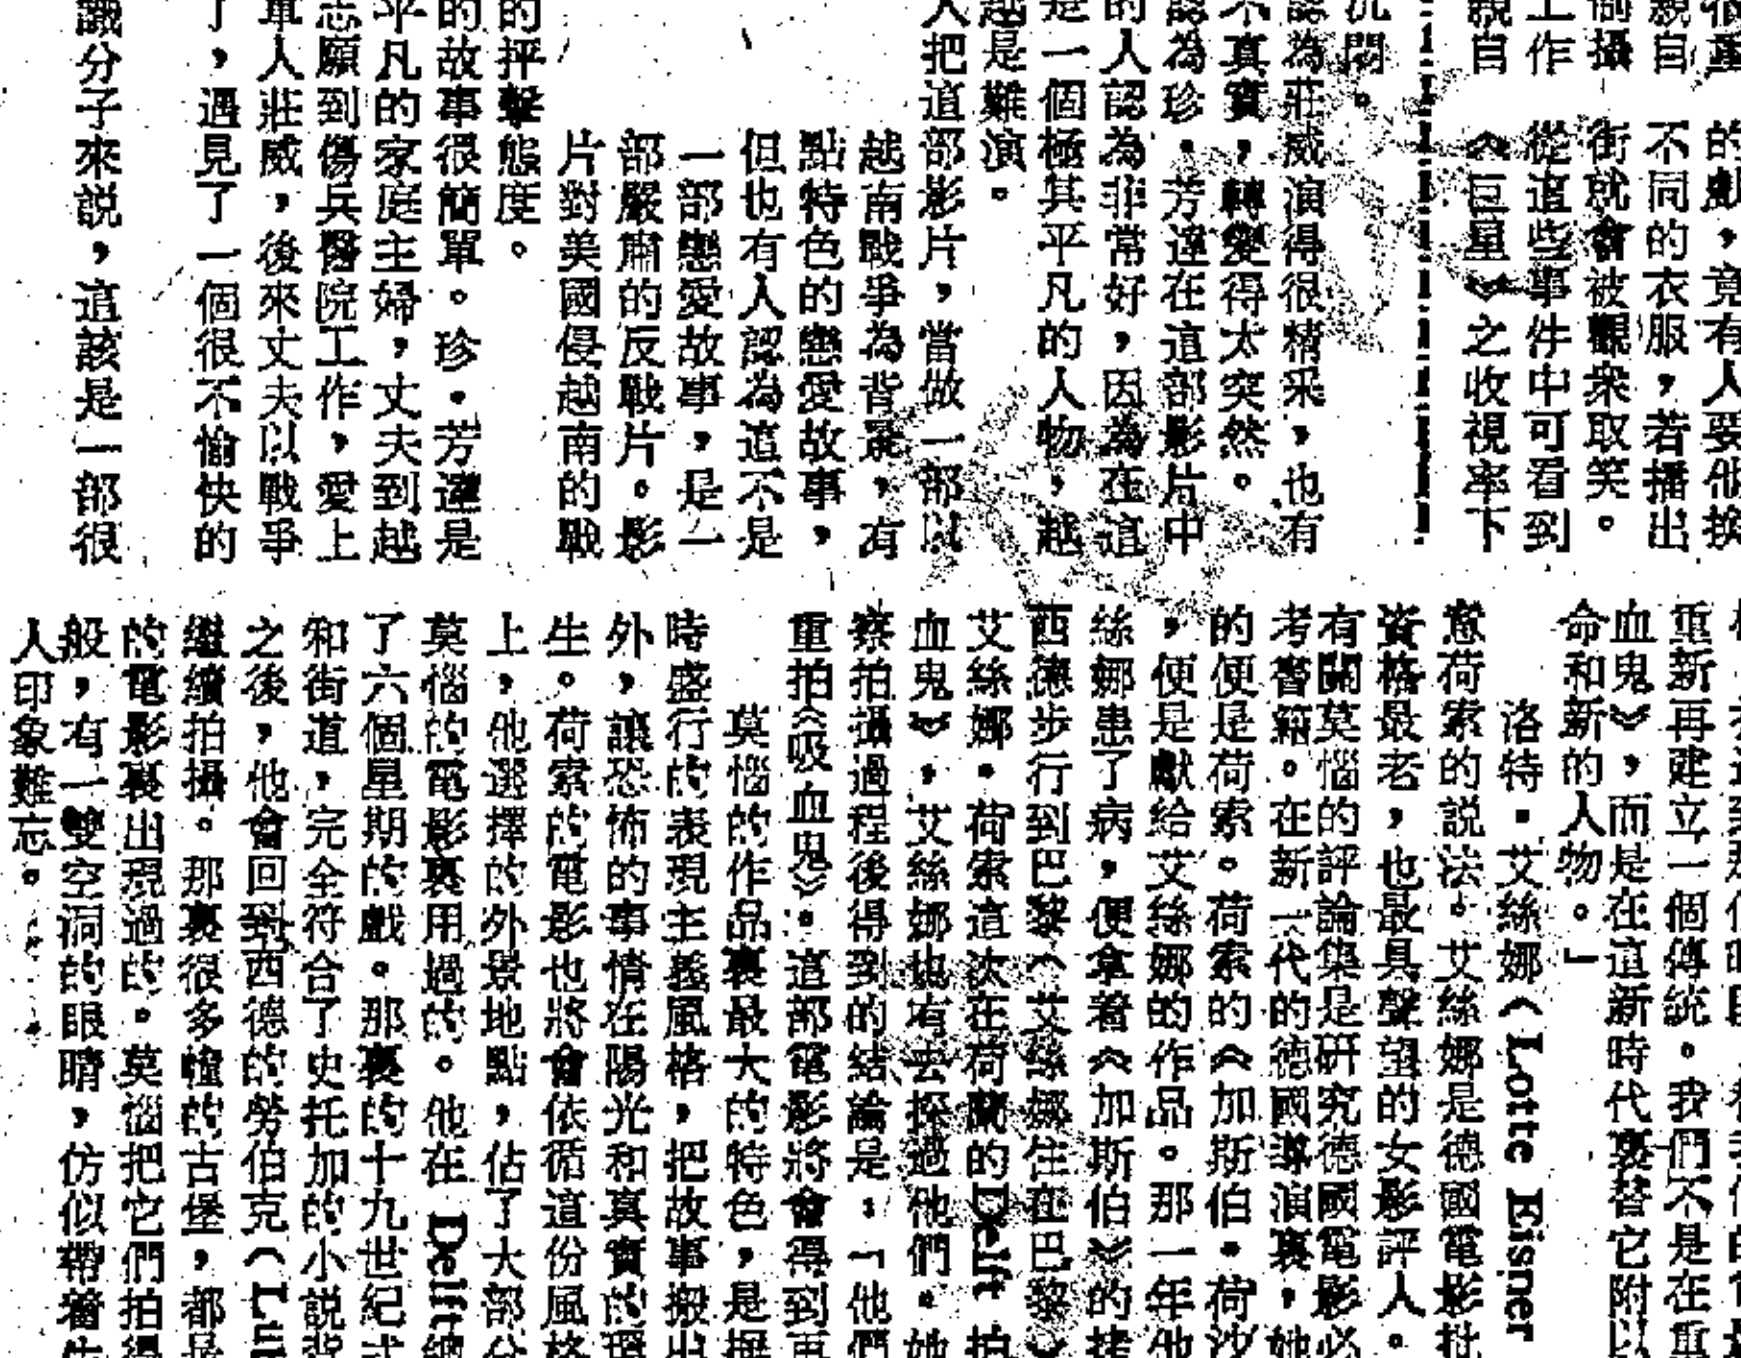 的戲，竟有人要他換
不同的衣服，若播出
街就會被觀眾取笑。
從這些事件中可看到
《巨星》之收視率下
沉悶。
認為莊威演得很精采，也有
不真實，轉變得太突然。
認為珍·芳達在這部影片中
的人認為非常好，因為在這
是一個極其平凡的人物，越
越是難演。
人把這部影片，當做一部以
越南戰爭為背景，有
點特色的戀愛故事，
但也有人認為這不是
一部戀愛故事，是一
部嚴肅的反戰片。影
片對美國侵越南的戰
的抨擊態度。
的故事很簡單。珍·芳達是
平凡的家庭主婦，丈夫到越
志願到傷兵醫院工作，愛上
軍人莊威，後來丈夫以戰爭
了，遇見了一個很不愉快的
識分子來説，這該是一部很
重新再建立一個傳統。我們不是在重
血鬼》，而是在這新時代裏替它附以
命和新的人物。」
洛特·艾絲娜（Lotte Eisner
意荷索的説法。艾絲娜是德國電影批
資格最老，也最具聲望的女影評人。
有關莫惱的評論集是研究德國電影必
考書籍。在新一代的德國導演裏，她
的便是荷索。荷索的《加斯伯·荷沙
，便是獻給艾絲娜的作品。那一年他
絲娜患了病，便拿着《加斯伯》的拷
西德步行到巴黎（艾絲娜住在巴黎）
艾絲娜。荷索這次在荷蘭的Delft 拍
血鬼》，艾絲娜也有去探過他們。她
察拍攝過程後得到的結論是：「他們
重拍《吸血鬼》。這部電影將會得到再
莫惱的作品裏最大的特色，是摒
時盛行的表現主義風格，把故事搬出
外，讓恐怖的事情在陽光和真實的環
生。荷索的電影也將會依循這份風格
上，他選擇的外景地點，佔了大部分
莫惱的電影裏用過的。他在 Delft
了六個星期的戲。那裏的十九世紀式
和街道，完全符合了史托加的小説背
之後，他會回到西德的勞伯克（Lü
繼續拍攝。那裏很多幢的古堡，都是
的電影裏出現過的。莫惱把它們拍得
般，有一雙空洞的眼睛，仿似帶着
人印象難忘。